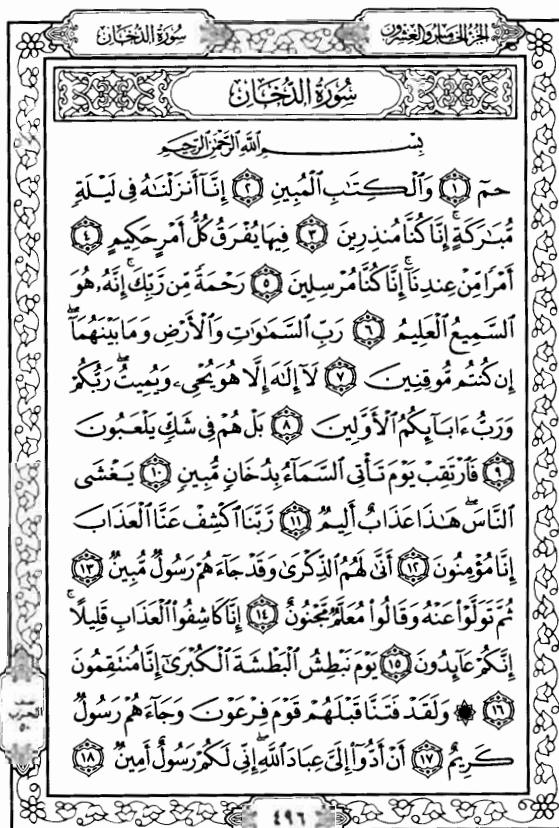 سُورَةُ الدُّخَانِ
الجُزْءُ الخَامِسُ وَالعِشْرُونَ
سُورَةُ الدُّخَانِ
بِسْمِ اللَّهِ الرَّحْمَٰنِ الرَّحِيمِ
حمٓ ١ وَالْكِتَابِ الْمُبِينِ ٢ إِنَّا أَنزَلْنَٰهُ فِى لَيْلَةٍ
مُّبَٰرَكَةٍ ۚ إِنَّا كُنَّا مُنذِرِينَ ٣ فِيهَا يُفْرَقُ كُلُّ أَمْرٍ حَكِيمٍ ٤
أَمْرًا مِّنْ عِندِنَآ ۚ إِنَّا كُنَّا مُرْسِلِينَ ٥ رَحْمَةً مِّن رَّبِّكَ ۚ إِنَّهُۥ هُوَ
السَّمِيعُ الْعَلِيمُ ٦ رَبِّ السَّمَٰوَٰتِ وَالْأَرْضِ وَمَا بَيْنَهُمَآ ۖ
إِن كُنتُم مُّوقِنِينَ ٧ لَآ إِلَٰهَ إِلَّا هُوَ يُحْىِۦ وَيُمِيتُ ۖ رَبُّكُمْ
وَرَبُّ ءَابَآئِكُمُ الْأَوَّلِينَ ٨ بَلْ هُمْ فِى شَكٍّ يَلْعَبُونَ
٩ فَارْتَقِبْ يَوْمَ تَأْتِى السَّمَآءُ بِدُخَانٍ مُّبِينٍ ١٠ يَغْشَى
النَّاسَ ۖ هَٰذَا عَذَابٌ أَلِيمٌ ١١ رَّبَّنَا اكْشِفْ عَنَّا الْعَذَابَ
إِنَّا مُؤْمِنُونَ ١٢ أَنَّىٰ لَهُمُ الذِّكْرَىٰ وَقَدْ جَآءَهُمْ رَسُولٌ مُّبِينٌ ١٣
ثُمَّ تَوَلَّوْا۟ عَنْهُ وَقَالُوا۟ مُعَلَّمٌ مَّجْنُونٌ ١٤ إِنَّا كَاشِفُوا۟ الْعَذَابِ قَلِيلًا ۚ
إِنَّكُمْ عَآئِدُونَ ١٥ يَوْمَ نَبْطِشُ الْبَطْشَةَ الْكُبْرَىٰٓ إِنَّا مُنتَقِمُونَ
١٦ ۞ وَلَقَدْ فَتَنَّا قَبْلَهُمْ قَوْمَ فِرْعَوْنَ وَجَآءَهُمْ رَسُولٌ
كَرِيمٌ ١٧ أَنْ أَدُّوٓا۟ إِلَىَّ عِبَادَ اللَّهِ ۖ إِنِّى لَكُمْ رَسُولٌ أَمِينٌ ١٨
نصف
الحزب
٥٠
٤٩٦